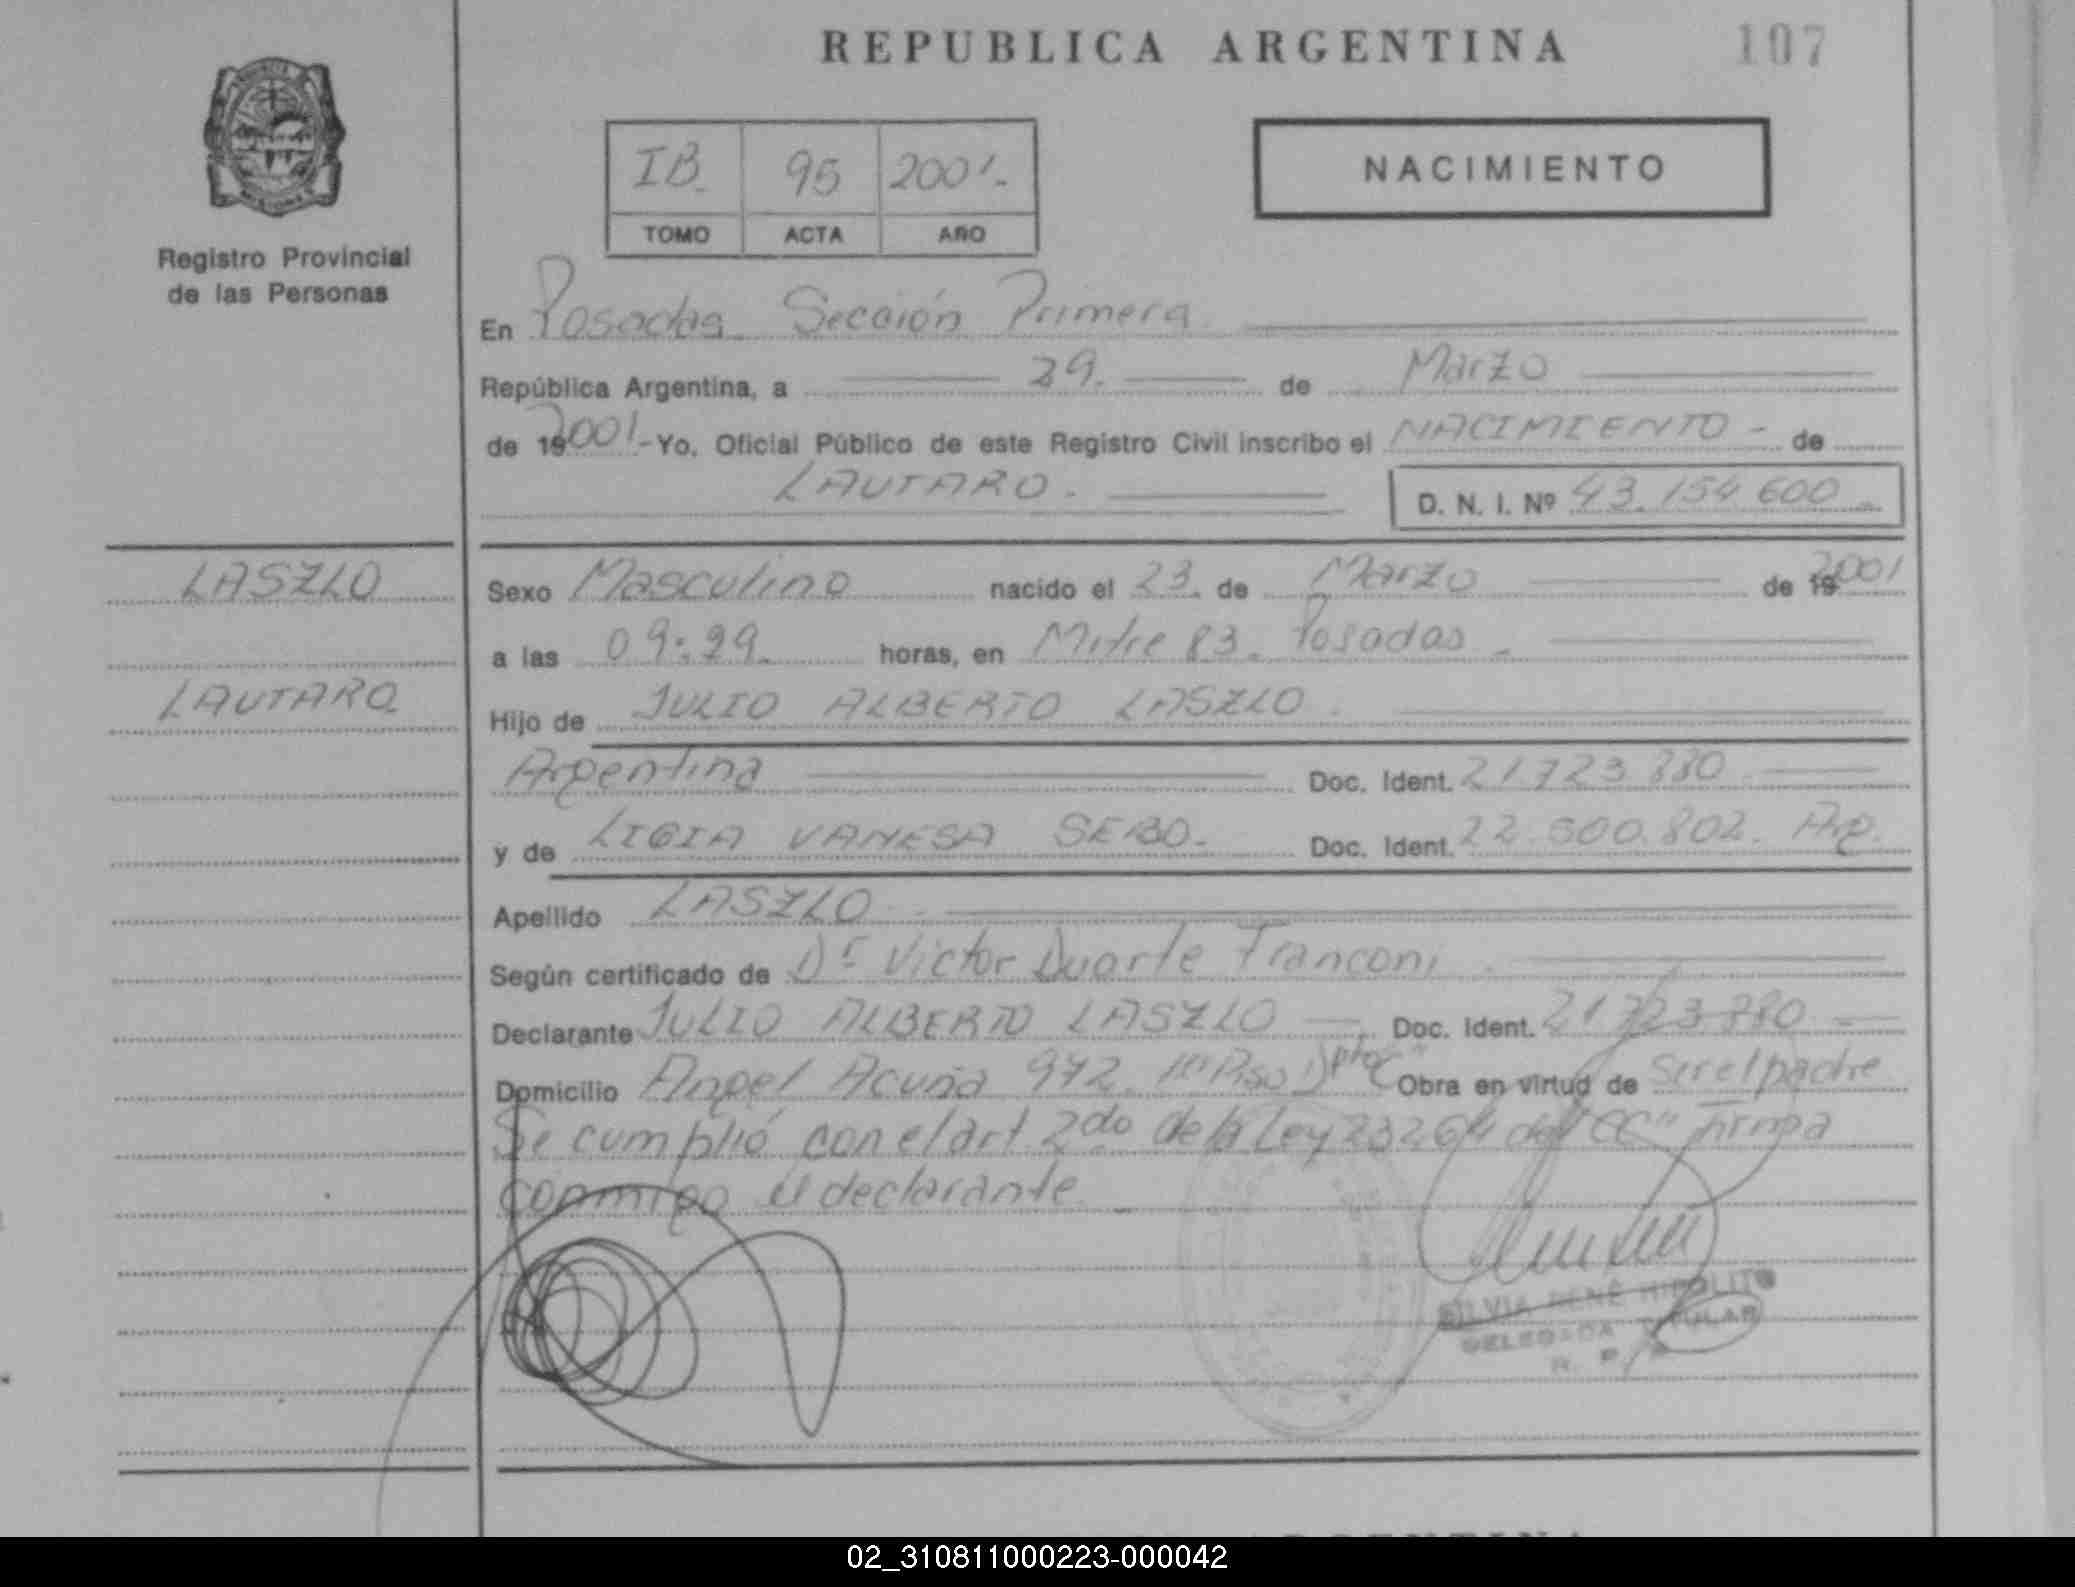 REPUBLICA ARGENTINA
107
IB. 95 2001.-
TOMO ACTA AÑO
NACIMIENTO
Registro Provincial
de las Personas
En Posadas Sección Primera
República Argentina, a 29. de Marzo
de 192001.- Yo, Oficial Público de este Registro Civil inscribo el NACIMIENTO - de
LAUTARO.
D. N. I. Nº 43.154.600
LASZLO
LAUTARO
Sexo Masculino nacido el 23. de Marzo de 192001
a las 09:29. horas, en Mitre 83. Posadas -
Hijo de JULIO ALBERTO LASZLO.
Argentina Doc. Ident. 21.723.880
y de LIGIA VANESA SEBO.- Doc. Ident. 22.600.802. Arg.
Apellido LASZLO
Según certificado de Dr Victor Duarte Franconi
Declarante JULIO ALBERTO LASZLO Doc. Ident. 21.723.880
Domicilio Angel Acuña 972. Piso Dpto "C" Obra en virtud de Ser el padre
Se cumplió con el art 2do de la Ley 23264 del "CC" Firma
conmigo el declarante
SILVIA RENÉ HIPOLITO
DELEGADA TITULAR
R. P. P.
02_310811000223-000042